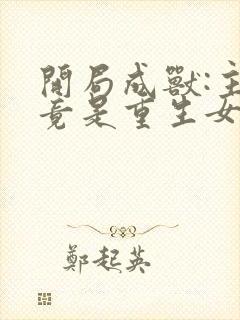 開局成獸:主
竟是重生女
鄭起英